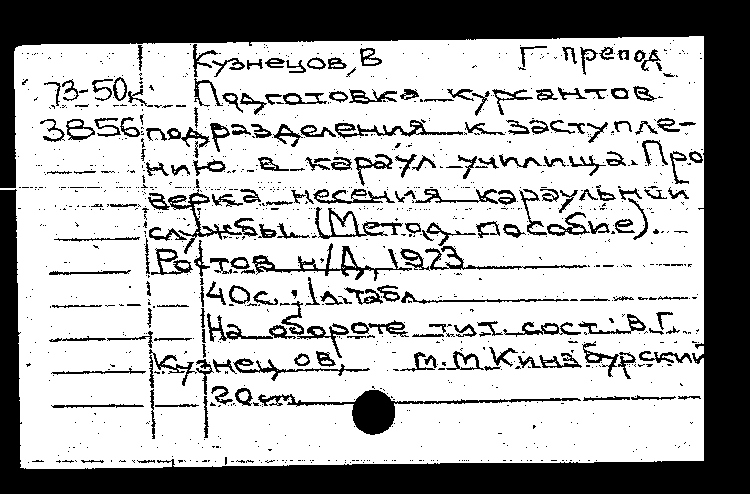 Кузнецов, В Г препод
73-50к Подготовка курсантов
3856 подразделения к заступле-
нию в караул училища. Про
верка несения караульной
службы (Метод. пособие).
Ростов н/Д., 1973
40с.; 1л.табл.
На обороте тит. сост: В.Г.
Кузнецов, М.М.Кинабурский
20 см.